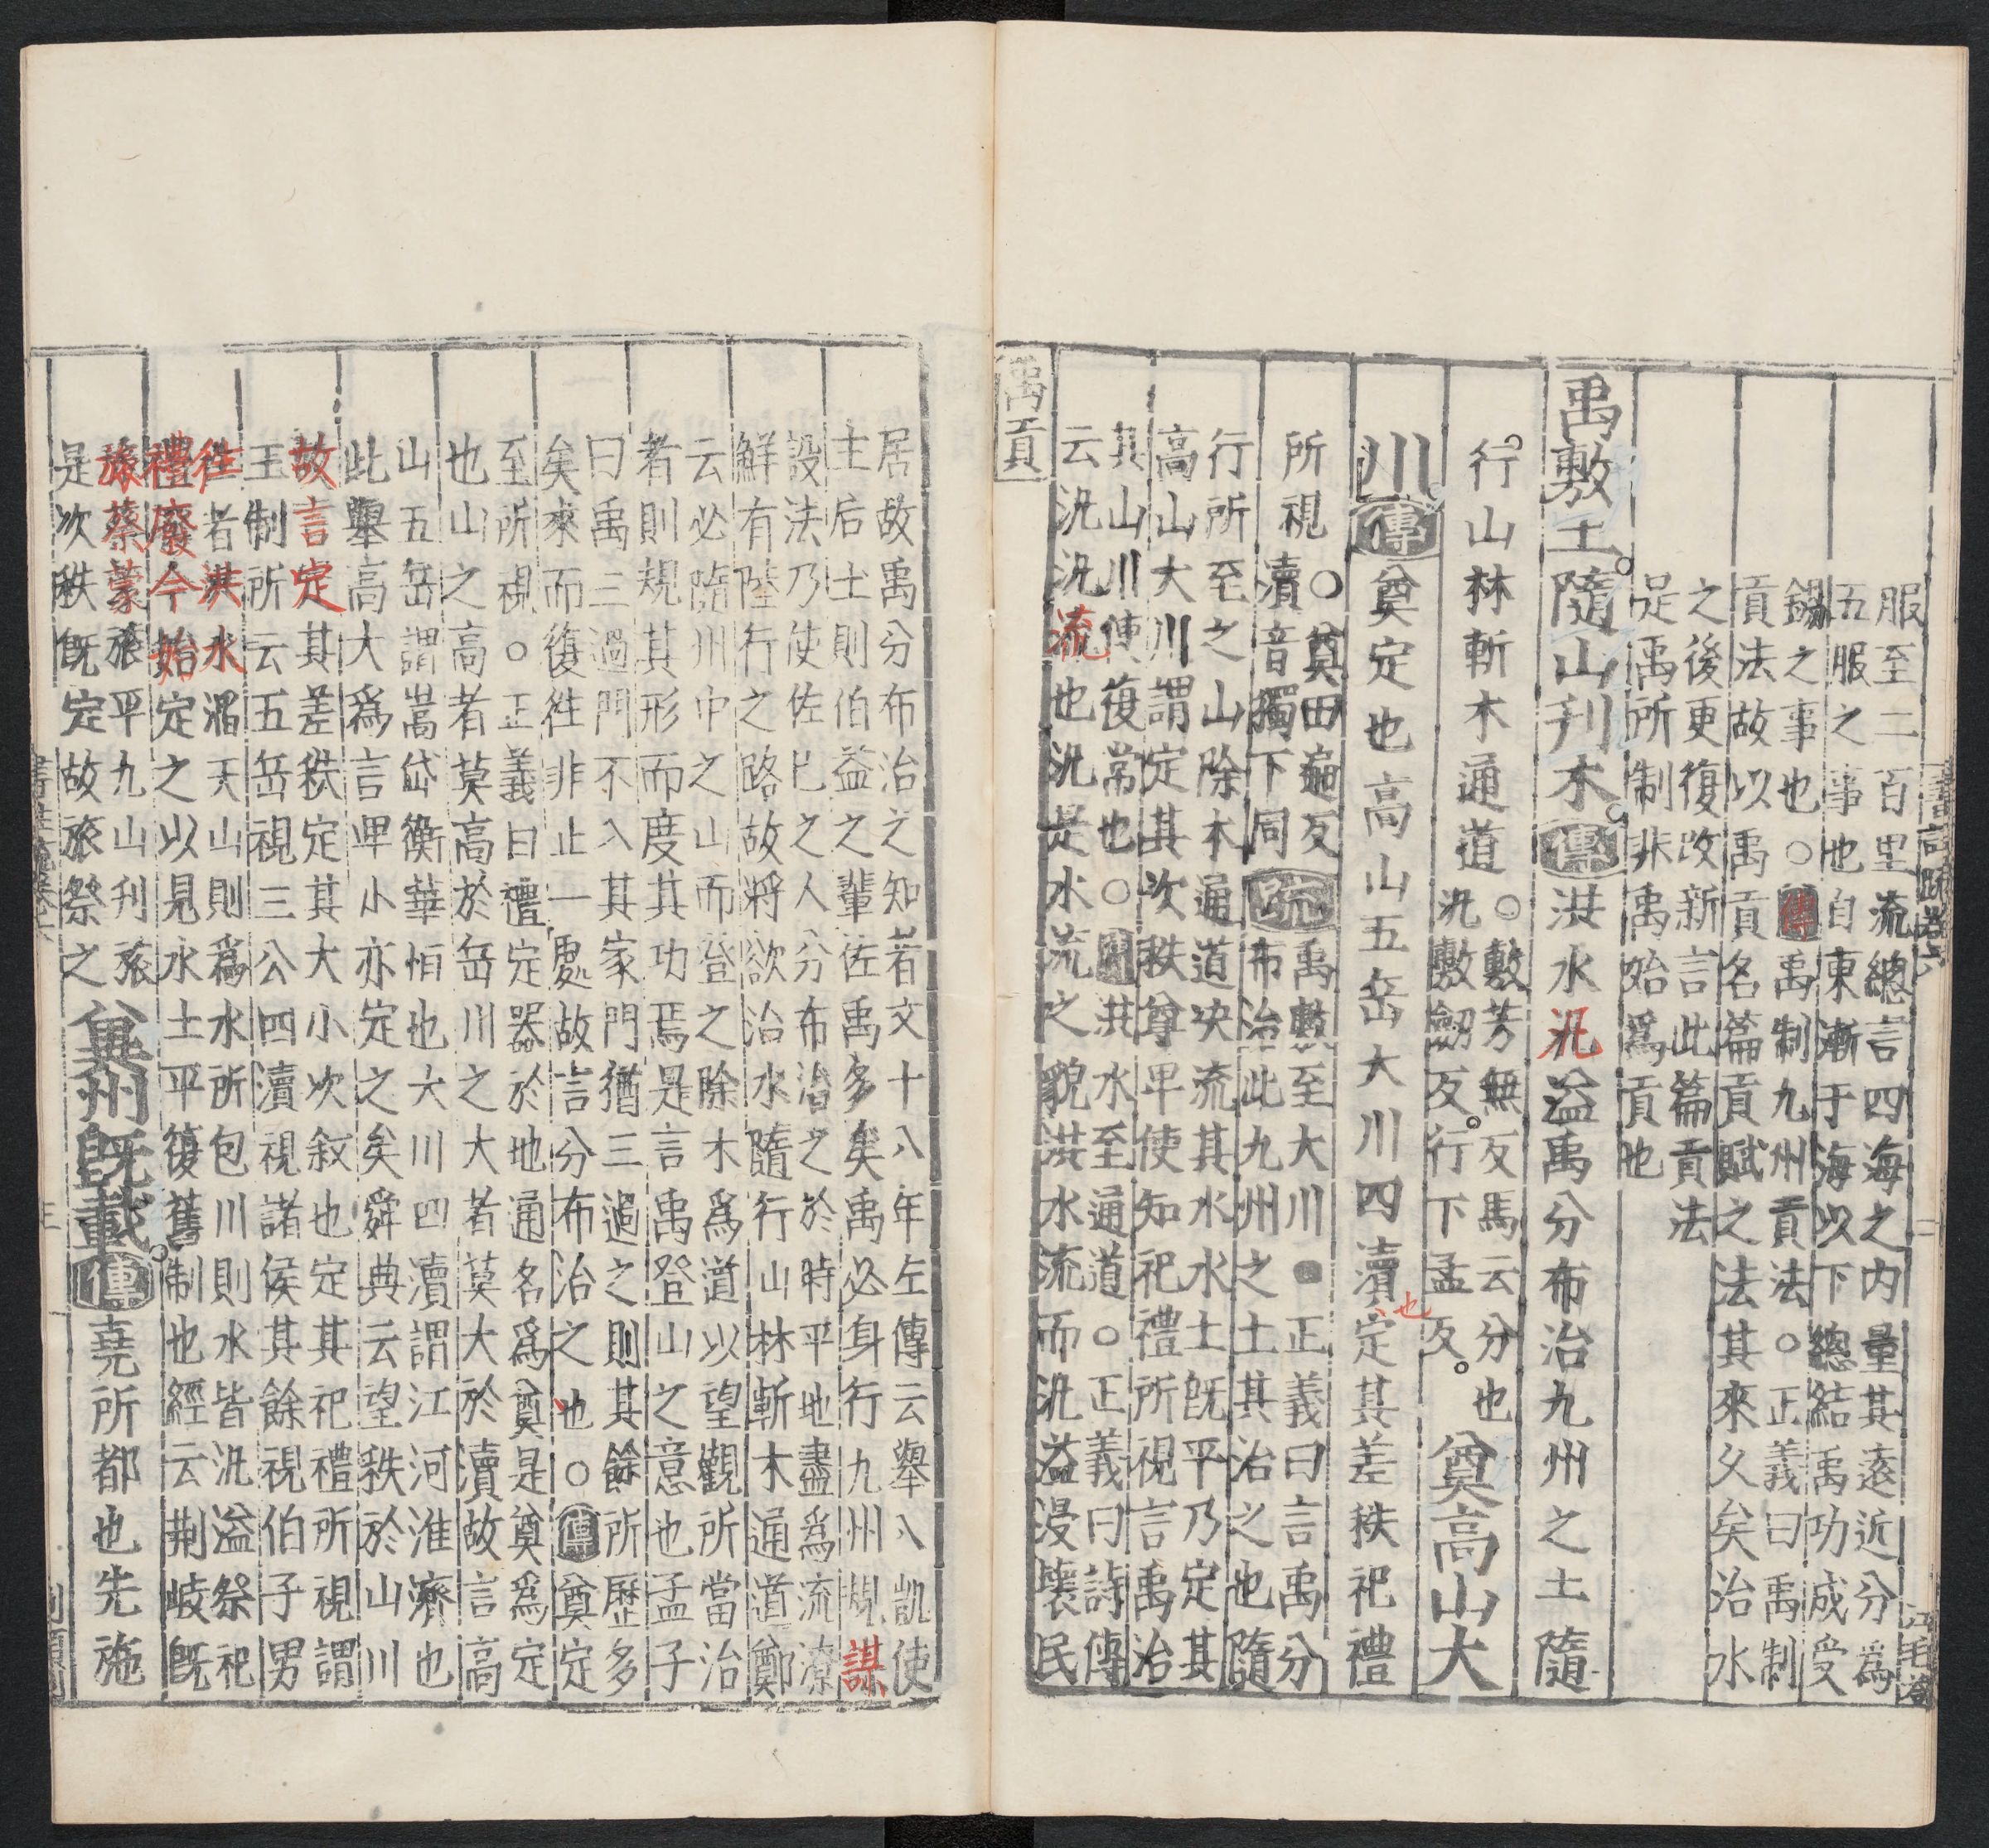 服至二百里流總言四海之內量其遠近分爲
五服之事也自東漸于海以下總結禹功成受
錫之事也○傳禹制九州貢法○正義曰禹制
貢法故以禹貢名篇貢賦之法其來久矣治水
之後更復改新言此篇貢法
是禹所制非禹始爲貢也
禹敷土。隨山刋木。傳洪水汎溢禹分布治九州之土隨
行山林斬木通道
○敷芳無反馬云分也
汎敷劒反。行下孟反。
奠高山大
川傳奠定也高山五岳大川四瀆也定其差秩祀禮
所視
○奠田遍反
瀆音獨下同
疏
禹敷至大川●正義曰言禹分
布治此九州之土其治之也隨
行所至之山除木通道决流其水水土既平乃定其
高山大川謂定其次秩尊卑使知祀禮所視言禹治
其山川使復常也○傳洪水至通道○正義曰詩傳
云汎汎流也汎是水流之貌洪水流而汎溢浸壞民
禹貢
居故禹分布治之知者文十八年左傳云舉八凱使
主后土則伯益之輩佐禹多矣禹必身行九州規謀
設法乃使佐已之人分布治之於時平地盡爲流潦
鮮有陸行之路故將欲治水隨行山林斬木通道鄭
云必隨州中之山而登之除木爲道以望觀所當治
者則規其形而度其功焉是言禹登山之意也孟子
曰禹三過門不入其家門猶三過之則其餘所歷多
矣來而復往非止一處故言分布治之也○傳奠定
至所視○正義曰禮定器於地通名爲奠是奠爲定
也山之高者莫高於岳川之大者莫大於瀆故言高
山五岳謂嵩岱衡華恒也大川四瀆謂江河淮濟也
此舉高大爲言卑小亦定之矣舜典云望秩於山川
故言定其差秩定其大小次叙也定其祀禮所視謂
王制所云五岳視三公四瀆視諸侯其餘視伯子男
往者洪水滔天山則爲水所包川則水皆汎溢祭祀
禮廢今始定之以見水土平復舊制也經云荆岐既
旅蔡蒙旅平九山刋旅
是次秩既定故旅祭之
兾州既載。傳堯所都也先施